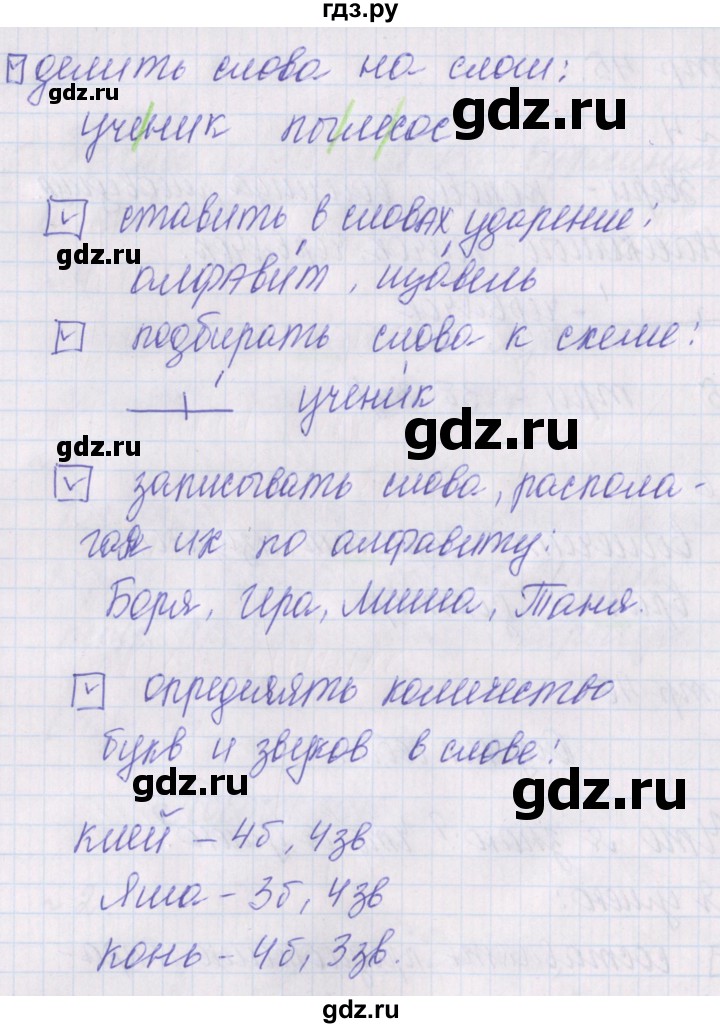 гдз.ру
делить слова на слоги:
gdz.ru
уче/ник пы/ле/сос
gdz.ru
ставить в словах ударение:
gdz.ru
алфави́т, ща́вель
подбирать слова к схеме:
учени́к
gdz.ru
gdz.ru
записывать слова, распола-
гая их по алфавиту:
gdz.ru
Боря, Гера, Миша, Таня.
определять количество
букв и звуков в слове:
gdz.ru
gdz.ru
клей - 4б, 4зв
Яша - 3б, 4зв
конь - 4б, 3зв.
gdz.ru